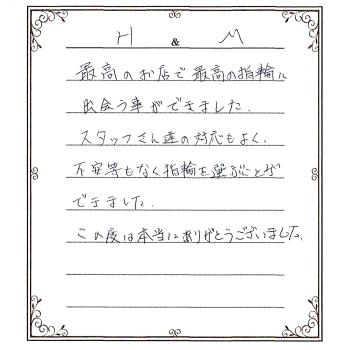 H & M
最高のお店で最高の指輪に
出会う事ができました.
スタッフさん達の対応もよく.
不安等もなく指輪を選ぶことが
できました.
この度は本当にありがとうございました.